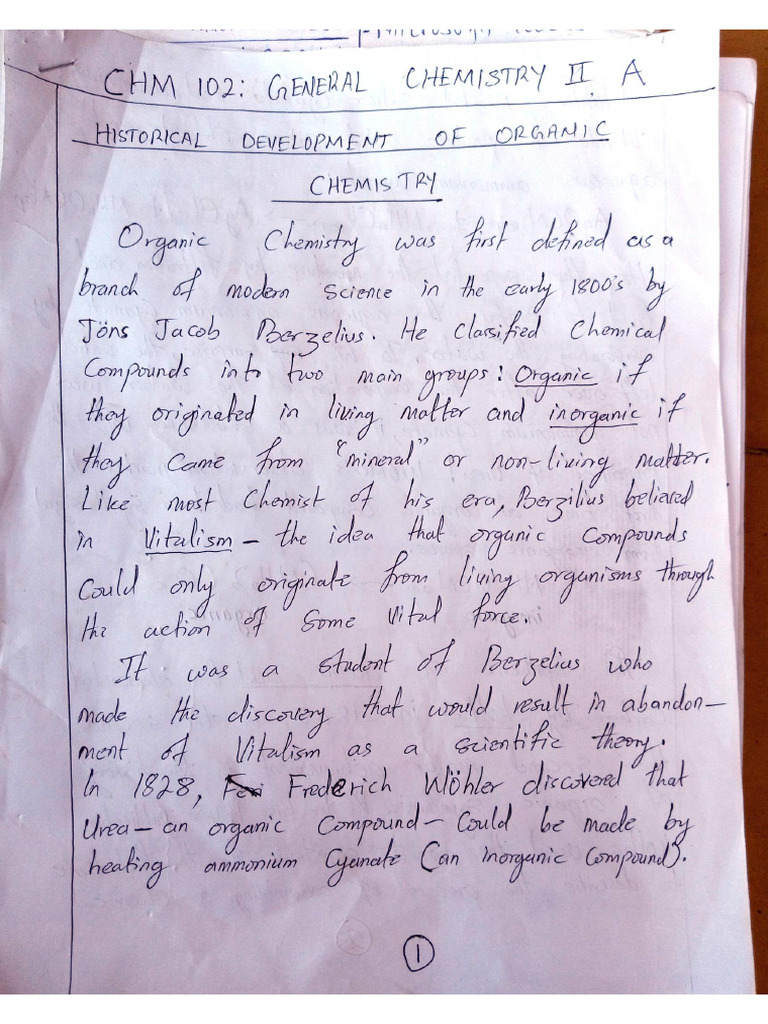 CHM 102: GENERAL CHEMISTRY II A
HISTORICAL DEVELOPMENT OF ORGANIC
CHEMISTRY
Organic Chemistry was first defined as a
branch of modern science in the early 1800's by
Jöns Jacob Berzelius. He classified Chemical
Compounds into two main groups: Organic if
they originated in living matter and inorganic if
they came from "mineral" or non-living matter.
Like most Chemist of his era, Berzilius believed
in Vitalism – the idea that organic Compounds
Could only originate from living organisms through
the action of some vital force.
It was a student of Berzelius who
made the discovery that would result in abandon-
ment of Vitalism as a scientific theory.
In 1828, Frederich Wöhler discovered that
Urea – an organic Compound – Could be made by
heating ammonium Cyanate (an inorganic Compound).
1